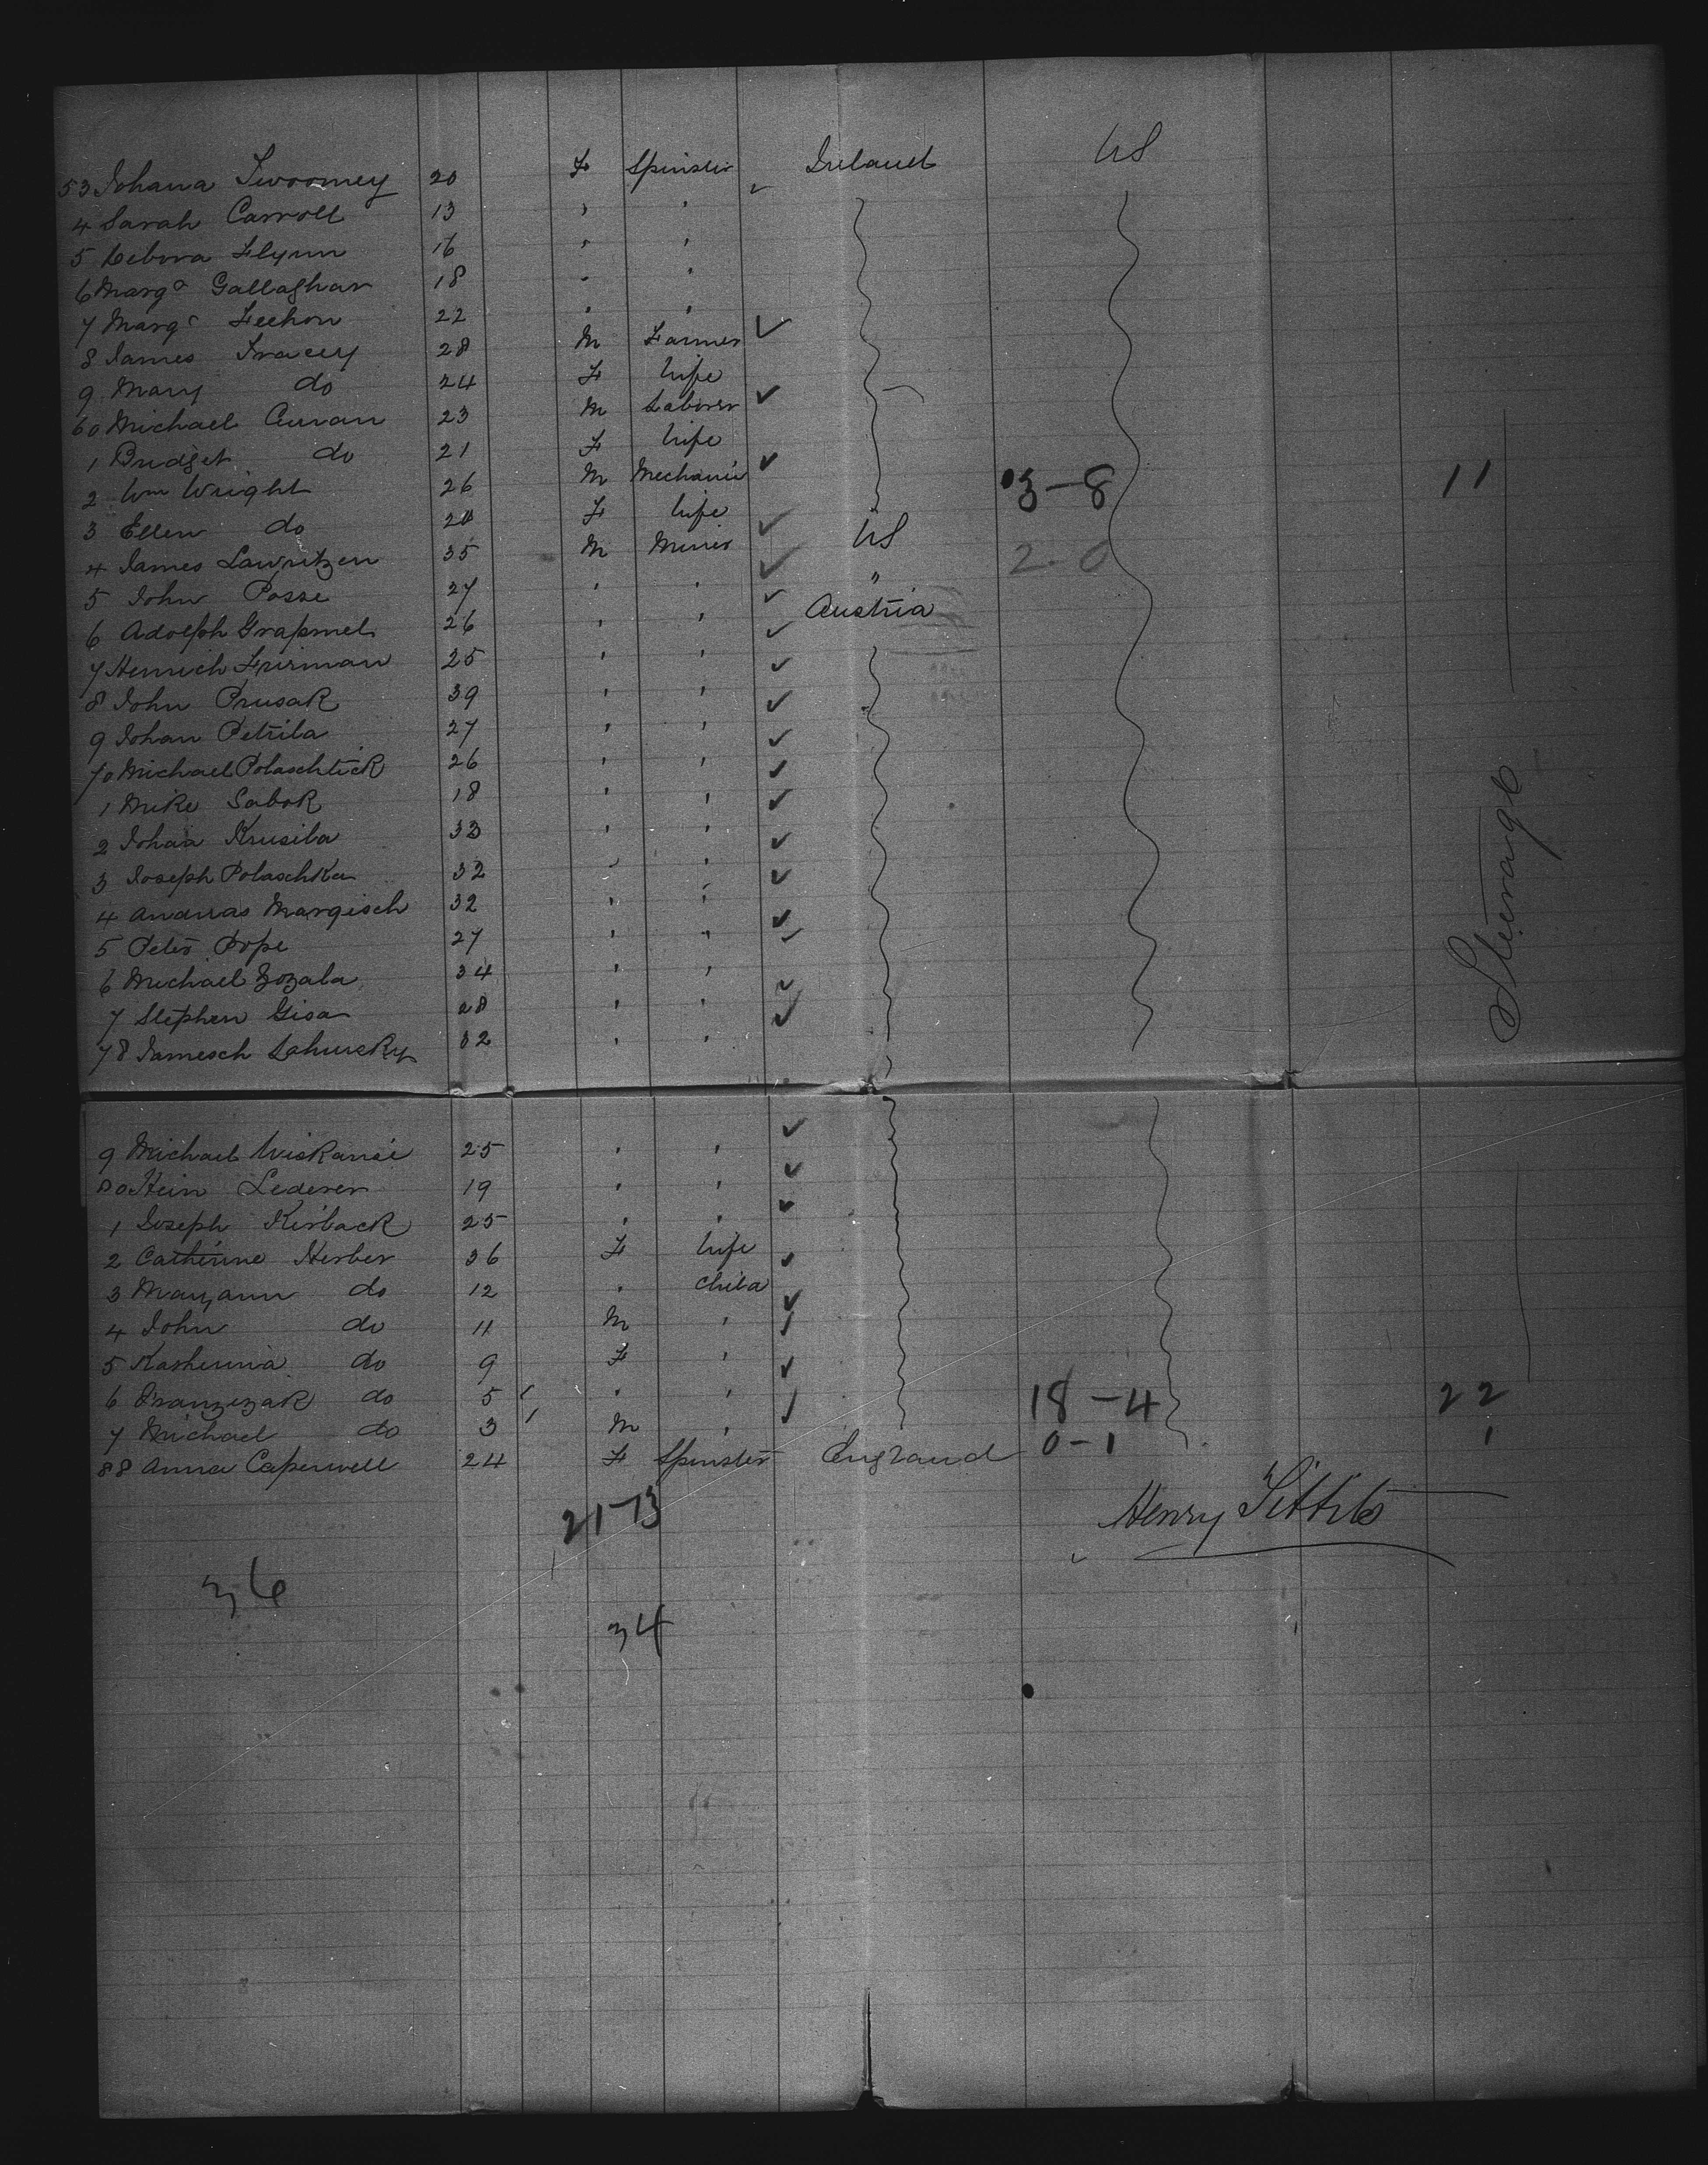 53 Johana Twoomey 20 F Spinster Ireland US
4 Sarah Carroll 13 " "
5 Debora Flynn 16 " "
6 Margᵗ Gallaghar 18 " "
7 Margᵗ Feehon 22 " "
8 James Tracey 28 M Farmer
9 Mary do 24 F Wife
60 Michael Curran 23 M Laborer
1 Bridget do 21 F Wife
2 Wm Wright 26 M Mechanic 3-8 11
3 Ellen do 20 F Wife
4 James Lawritzen 35 M Miner US 2-0
5 John Posse 27 " " "
6 Adolph Grapmel 26 " " Austria
7 Henrich Furman 25 " "
8 John Prusak 39 " "
9 Johan Petrila 27 " "
70 Michael Polaschtick 26 " "
1 Mike Sabok 18 " "
2 Johan Krusila 33 " "
3 Joseph Polaschka 32 " "
4 Andras Margisch 32 " "
5 Peter Pope 27 " "
6 Michael Zozala 34 " "
7 Stephen Gisa 28 " "
78 Jamesch Lahucsky 32 " "
Steerage
9 Michael 25 " "
80 Hein Lederer 19 " "
1 Joseph Kirback 25 " "
2 Catherine Herber 36 F Wife
3 Maryann do 12 " Child
4 John do 11 M "
5 Katherina do 9 F "
6 Franzizak do 5 " " 18-4 22
7 Michael do 3 M " 0-1 1
88 Anna Caperwell 24 F Spinster England
21-13
Henry
36
34